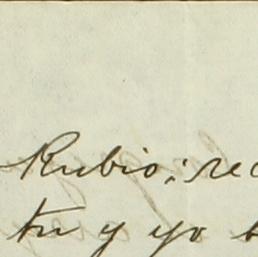 Rubio; rec
tu y yo